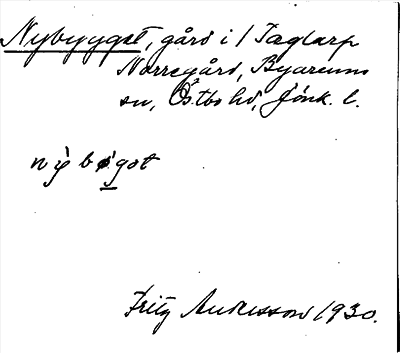 Nybygget, gård i 1 Taglarp
Norregård, Byarums
sn, Östbo hd, Jönk. l.
nỳbøgət
Fritz Andersson 1930.